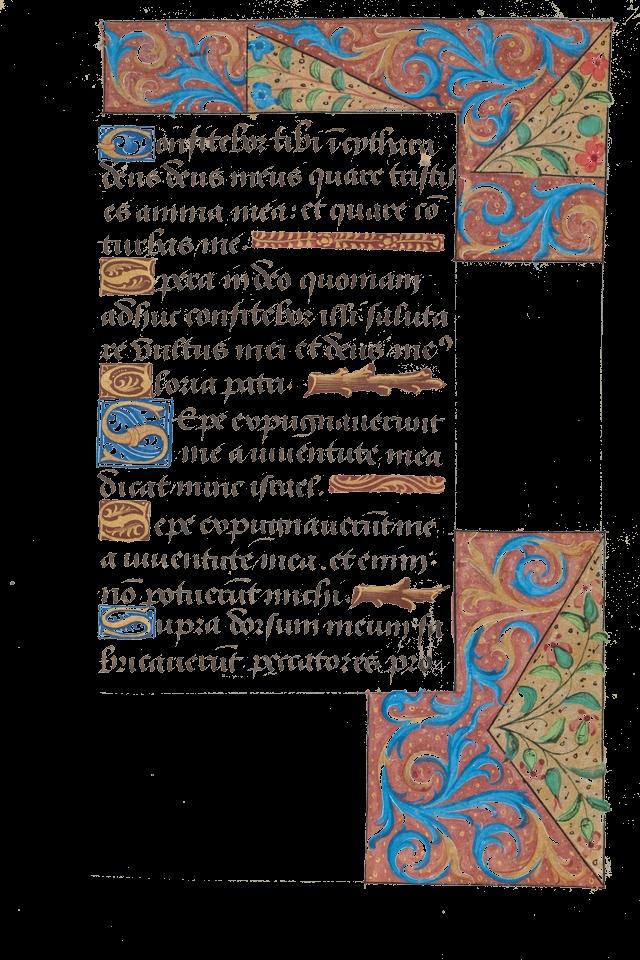 Confitebor tibi ī cythara
deus deus meus quare tristis
es anima mea: et quare cō
turbas me.
Spera in deo quoniam
adhuc confitebor illi saluta
re vultus mei et deus meꝰ
Gloria patri.
Sepe expugnauerunt
me a iuuentute mea
dicat nunc israel.
Sepe expugnauerūt me
a iuuentute mea. et enim
nō potuerūt michi
Supra dorsum meum fa
bricauerūt peccatores pro